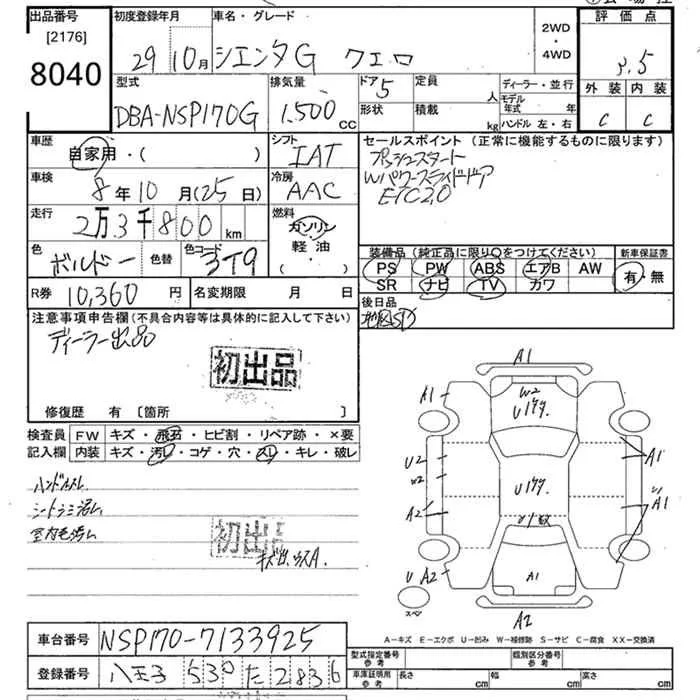 出品番号 [2176] 8040
初度登録年月 29 10月
車名・グレード シエンタG クエロ
2WD・4WD
評価点 3.5
外装 C 内装 C
型式 DBA-NSP170G
排気量 1,500 CC
ドア 5 形状
定員 人 積載 kg
ディーラー・並行
モデル年式 年
ハンドル 左・右
車歴 自家用・( )
シフト IAT
車検 8年10月(25日)
冷房 AAC
走行 2万3千800 km
燃料 ガソリン・軽油・( )
色 ボルドー 色替 色コード 3T9
R券 10,360円
名変期限 月 日
セールスポイント(正常に機能するものに限ります)
プッシュスタート
Wパワースライドドア
ETC2.0
装備品(純正品に限り〇をつけてください)
PS PW ABS エアB AW
SR ナビ TV カワ
新車保証書 有・無
後日品
地図SD
注意事項申告欄(不具合内容等は具体的に記入して下さい)
ディーラー出品
初出品
修復歴 有 [箇所 ]
検査員記入欄
FW キズ・飛石・ヒビ割・リペア跡・×要
内装 キズ・汚レ・コゲ・穴・スレ・キレ・破レ
シートシミ汚レ
室内色汚レ
初出品
A1
W2
U177.
A1
U2
W2
A1
U177.
A2
A1
U A2
A1
スペア
A2
A―キズ E―エクボ U―凹み W―補修跡 S―サビ C―腐食 XX―交換済
車台番号 NSP170-7133925
登録番号 八王子 530 た 2836
型式指定番号 参考
類別区分番号 参考
車庫証明用 参考 長さ cm 幅 cm 高さ cm